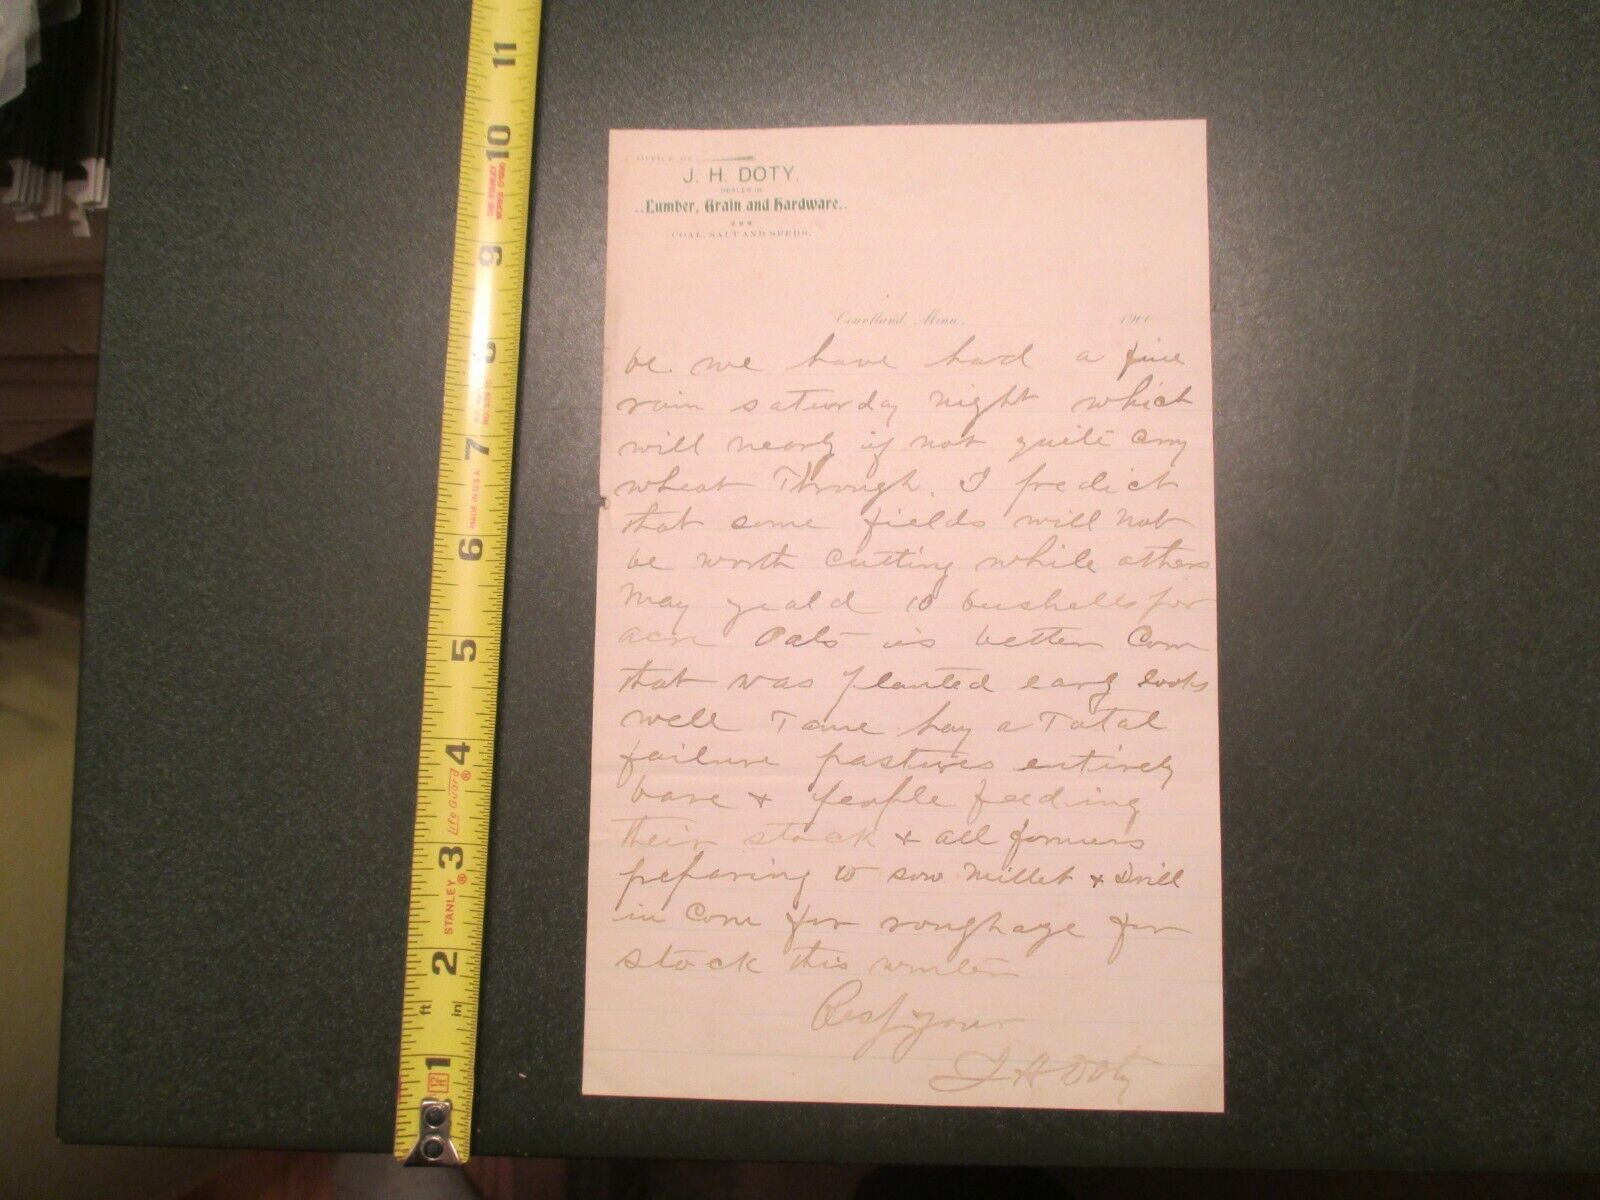 OFFICE OF
J. H. DOTY,
DEALER IN
..Lumber, Grain and Hardware..
COAL, SALT AND SEEDS.
Courtland, Minn. 1900
be. we have had a fine
rain saturday night which
will nearly if not quite carry
wheat Through. I predict
that some fields will not
be worth cutting while others
may yeald 10 bushells per
acre Oats is better Corn
that was planted early looks
well Tame hay a Total
failure pastures entirely
bare & people feeding
their stock & all farmers
preparing to sow Millet & Drill
in Corn for roughage for
stock this winter
Resp yours
J H Doty
11
10
9
8
7
6
5
4
3
2
1
ft
in
12 ft
STANLEY®
Life Guard®
MADE IN U.S.A.